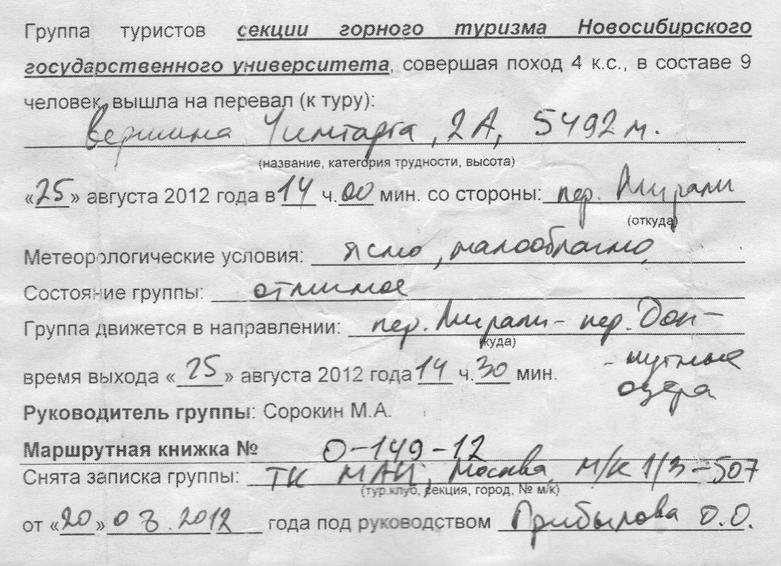 Группа туристов секции горного туризма Новосибирского
государственного университета, совершая поход 4 к.с., в составе 9
человек, вышла на перевал (к туру):
вершина Чимтарга, 2А, 5492 м.
(название, категория трудности, высота)
«25» августа 2012 года в 14 ч. 00 мин. со стороны: пер. Мирали
(откуда)
Метеорологические условия: ясно, малооблачно,
Состояние группы: отличное
Группа движется в направлении: пер. Мирали - пер. Доп-
(куда)
- мутные
время выхода «25» августа 2012 года 14 ч. 30 мин.
озера
Руководитель группы: Сорокин М.А.
Маршрутная книжка № 0-149-12
Снята записка группы: ТК МАИ, Москва, м/к 1/3-507
(тур.клуб, секция, город, № м/к)
от «20» 08.2012 года под руководством Прибылова О.О.